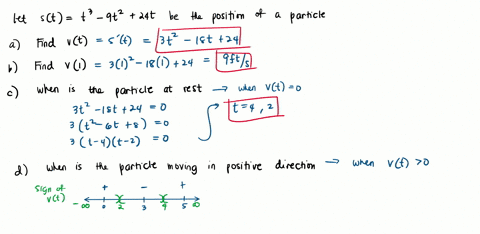 let s(t) = t³ - 9t² + 24t be the position of a particle
a) Find v(t) = s'(t) = 3t² - 18t + 24
b) Find v(1) = 3(1)² - 18(1) + 24 = 9ft/s
c) when is the particle at rest → when v(t) = 0
3t² - 18t + 24 = 0
t = 4, 2
3(t² - 6t + 8) = 0
3(t-4)(t-2) = 0
d) when is the particle moving in positive direction → when v(t) > 0
sign of v(t)
+ - +
-∞ 0 2 3 4 5 ∞